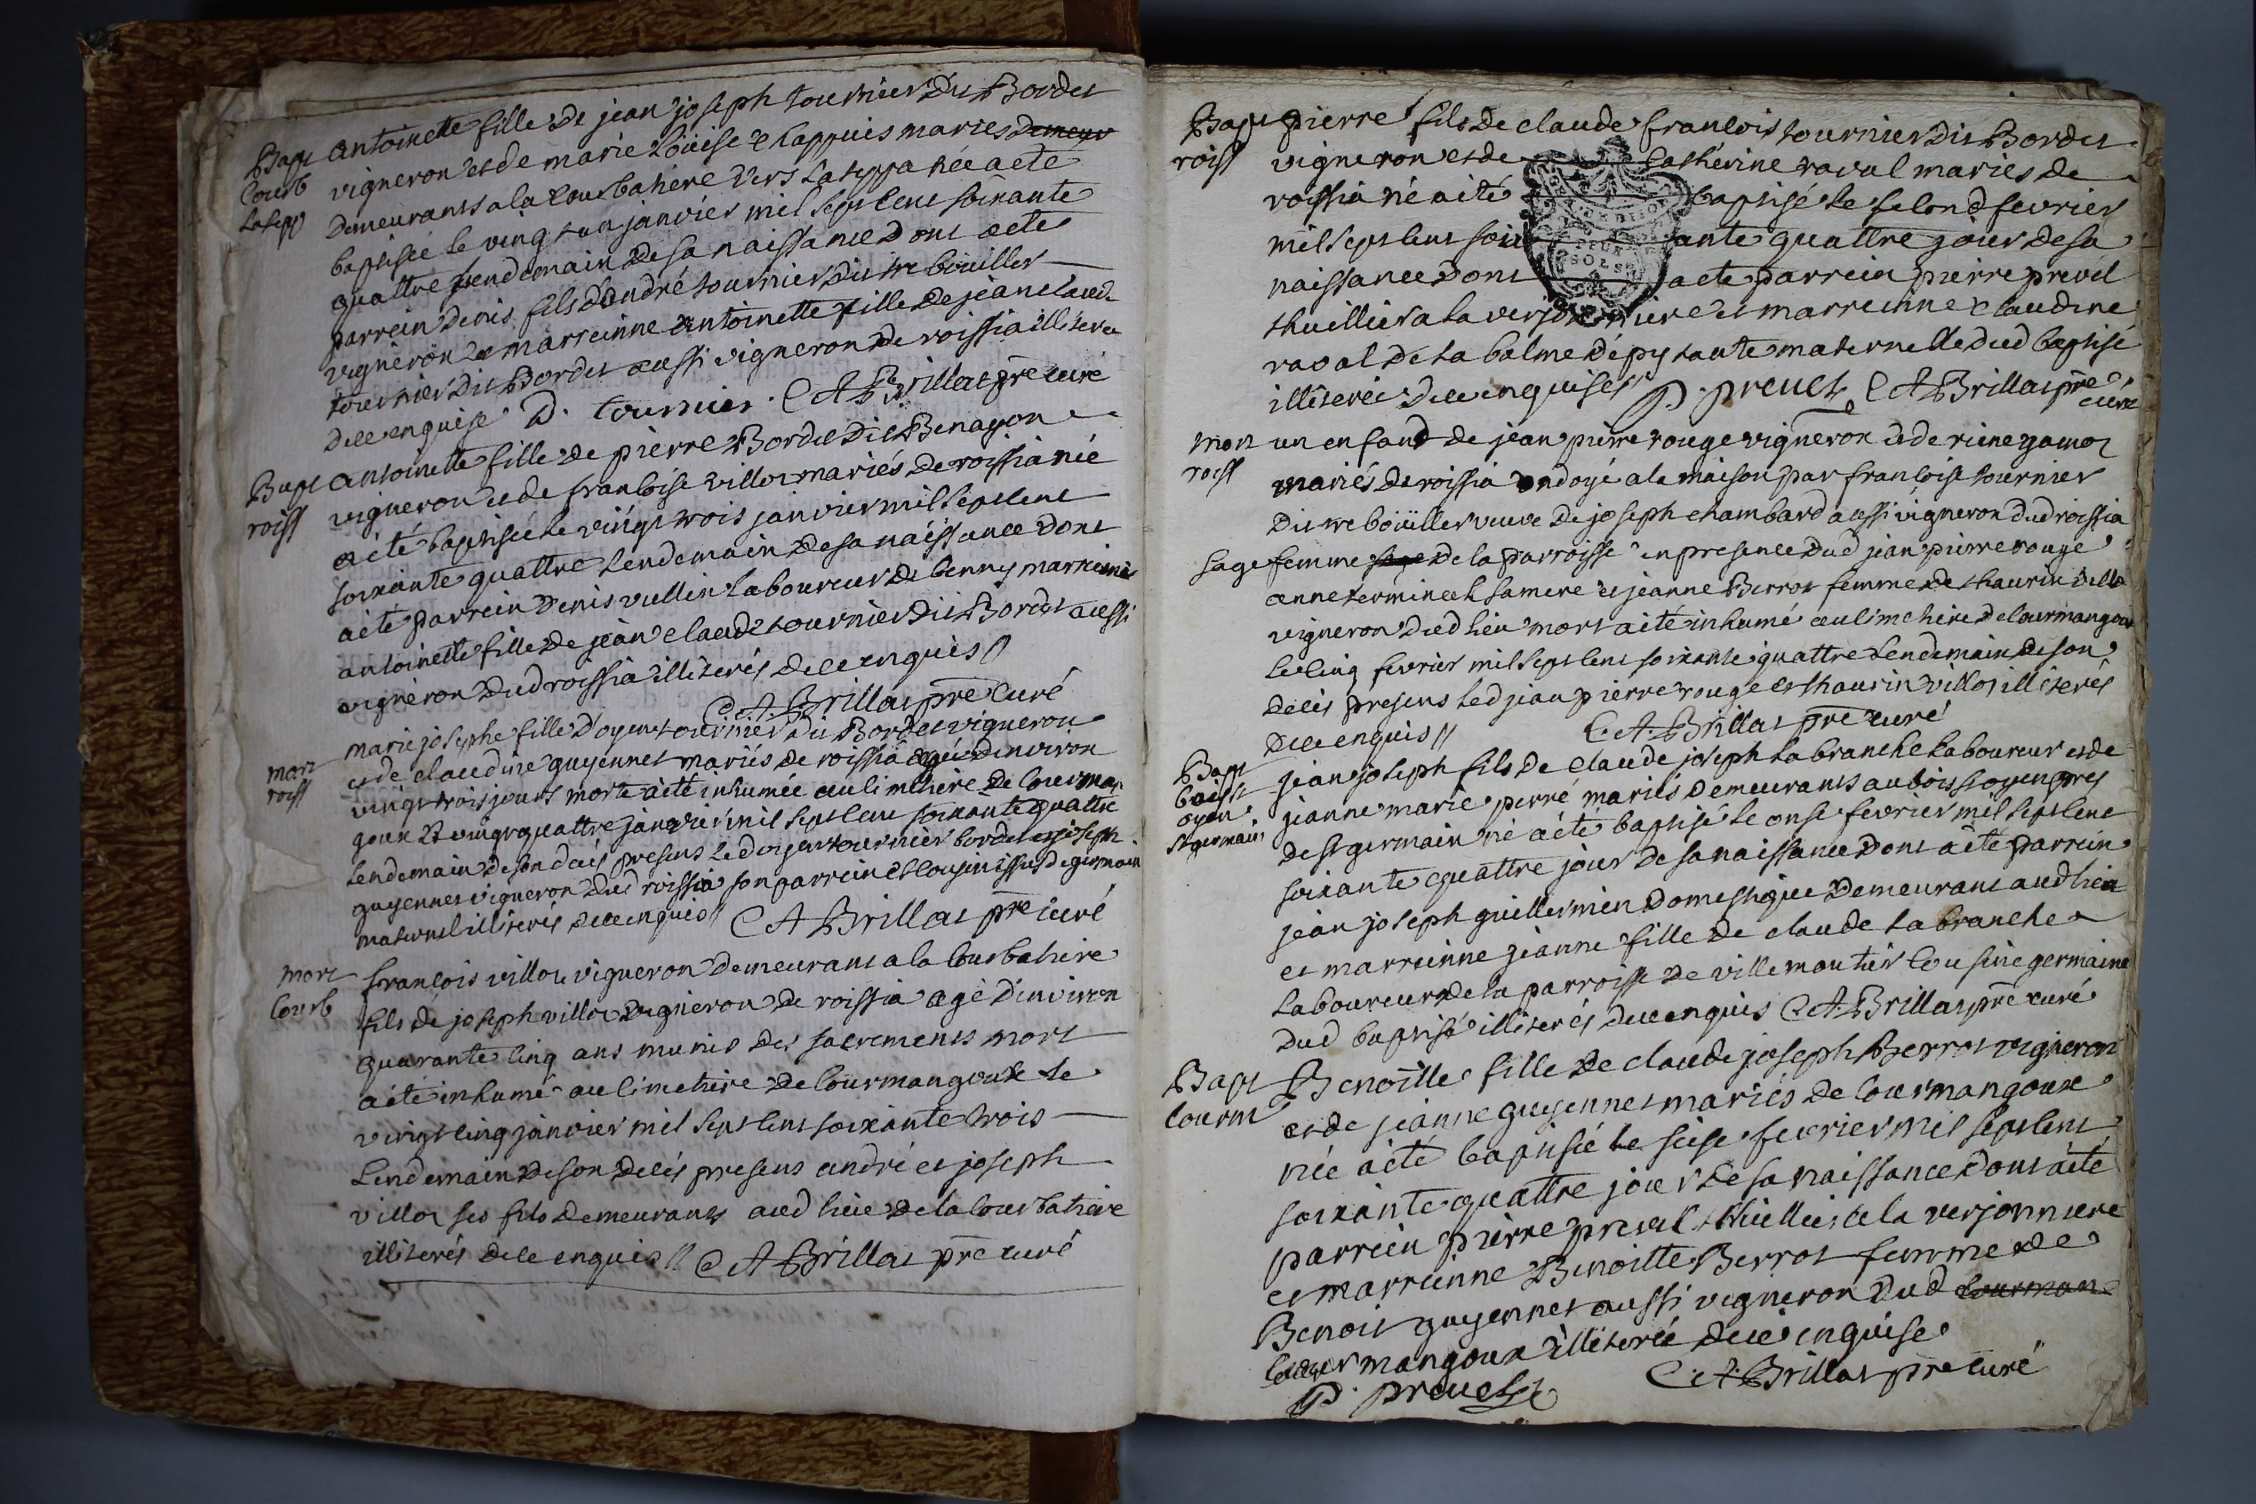 Bapt antoinette fille de jean joseph tournier dit Bordet
Courb vigneron et de marie Loüise Chappuis mariés demeur
Lasepp demeurants a la Courbatiere vers la seppa née a eté
baptisée le vingt un janvier mil sept cent soixante
quattre lendemain de sa naissance dont a eté
parrein denis fils d'andré tournier dit trebouiller
vigneron et marreinne antoinette fille de jean claude
tournier dit Bordet aussi vigneron de roissia illiterée
de ce enquise D. tournier. C A Brillat pre curé
Bapt antoinette fille de pierre Bordet dit Benayon
roiss vigneron et de francoise villot mariés de roissia née
a été baptisée le vingt trois janvier mil sept cent
soixante quattre lendemain de sa naissance dont
a eté parrein denis vullin laboureur de Cenny marreinne
antoinette fille de jean claude tournier dit Bordet aussi
vigneron dud roissia illiterés de ce enquis //
C A Brillat pre Curé
marie josephe fille d'oyen tournier dit Bordet vigneron
mort et de claudine guyennet mariés de roissia agée d'environ
roiss vingt trois jours morte a été inhumée au cimetiere de Courman
goux le vingt quattre janvier mil sept cent soixante quattre
lendemain de son décés presens led oyen tournier bordet et joseph
guyennet vigneron dud roissia son parrein et cousin issus de germain
maternel illiterés de ce enquis // C A Brillat pre curé
mort francois villot vigneron demeurant a la Courbatiere
Courb fils de joseph villot vigneron de roissia agé d'environ
quarante cinq ans munis des sacrements mort
a été inhumé au cimetiere de Courmangoux le
vingt cinq janvier mil sept cent soixante trois
Lendemain de son decés presens andré et joseph
villot ses fils demeurants aud lieu de la Courbatiere
illiterés de ce enquis // C A Brillat pre curé
Bapt pierre fils de claude francois tournier dit Bordet
roiss vigneron et de Catherine raval mariés de
roissia né a été baptisé le second fevrier
mil sept cent soixante quattre jour de sa
naissance dont a eté parrein pierre prevel
thuillier a la verjonniere et marreinne Claudine
raval de la balme d'épy tante maternelle dud baptisé
illiterée de ce enquise P. prevel C A Brillat pre
curé
mort un enfant de jean pierre rouge vigneron et de reine gamot
roiss mariés de roissia ondoyé a la maison par francoise tournier
dit treboüiller veuve de joseph chambard aussi vigneron dud roissia
sage femme sage de la parroisse en presence dud jean pierre rouge
anne sa mere et jeanne Berrot femme de thaurin villot
vigneron dud lieu mort a été inhumé au cimetiere de Courmangoux
le cinq fevrier mil sept cent soixante quattre lendemain de son
décés presens led jean pierre rouge et thaurin villot illiterés
de ce enquis // C. A. Brillat pre curé
Bapt jean joseph fils de claude joseph Labranche laboureur et de
boisst jeanne marie perré mariés demeurants au bois st oyen pres
oyen de st germain né a été baptisé le onse fevrier mil sept cent
st germain soixante quattre jour de sa naissance dont a été parrein
jean joseph guillermin domestique demeurant aud lieu
et marreinne jeanne fille de claude Labranche
laboureur de la parroisse de villemoutier cousine germaine
dud baptisé illiterés de ce enquis C A Brillat pre curé
Bapt Benoitte fille de claude joseph Berrot vigneron
Courm et de jeanne guyennet mariés de Courmangoux
née a été baptisée le seise fevrier mil sept cent
soixante quattre jour de sa naissance dont a été
parrein pierre prevel thuillier de la verjonniere
et marreinne Benoitte Berrot femme de
Benoit guyennet aussi vigneron dud Courman
Courmangoux illiterée de ce enquise
P. prevel C. A. Brillat pre Curé